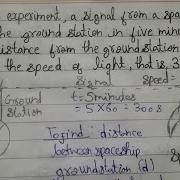 experiment, a signal from a spa
the ground station in five min
distance from the ground station
the speed of light, that is, 3
Signal
Speed=
Ground
Station
t=5minutes
= 5×60=300s
To find: distance
between spaceship
ground station (d)